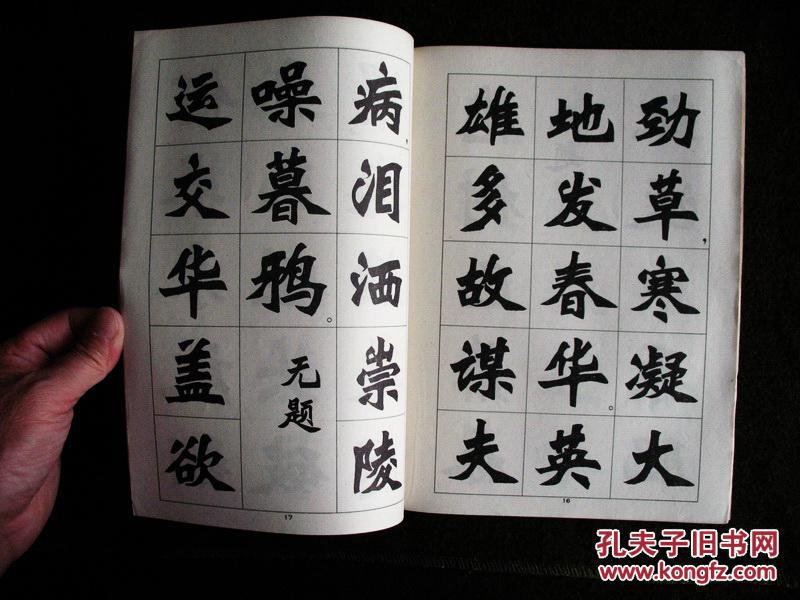 劲草,寒凝大
地发春华。英
雄多故谋夫
16
病,泪洒崇陵
噪暮鸦。
无题
运交华盖欲
17
孔夫子旧书网
www.kongfz.com